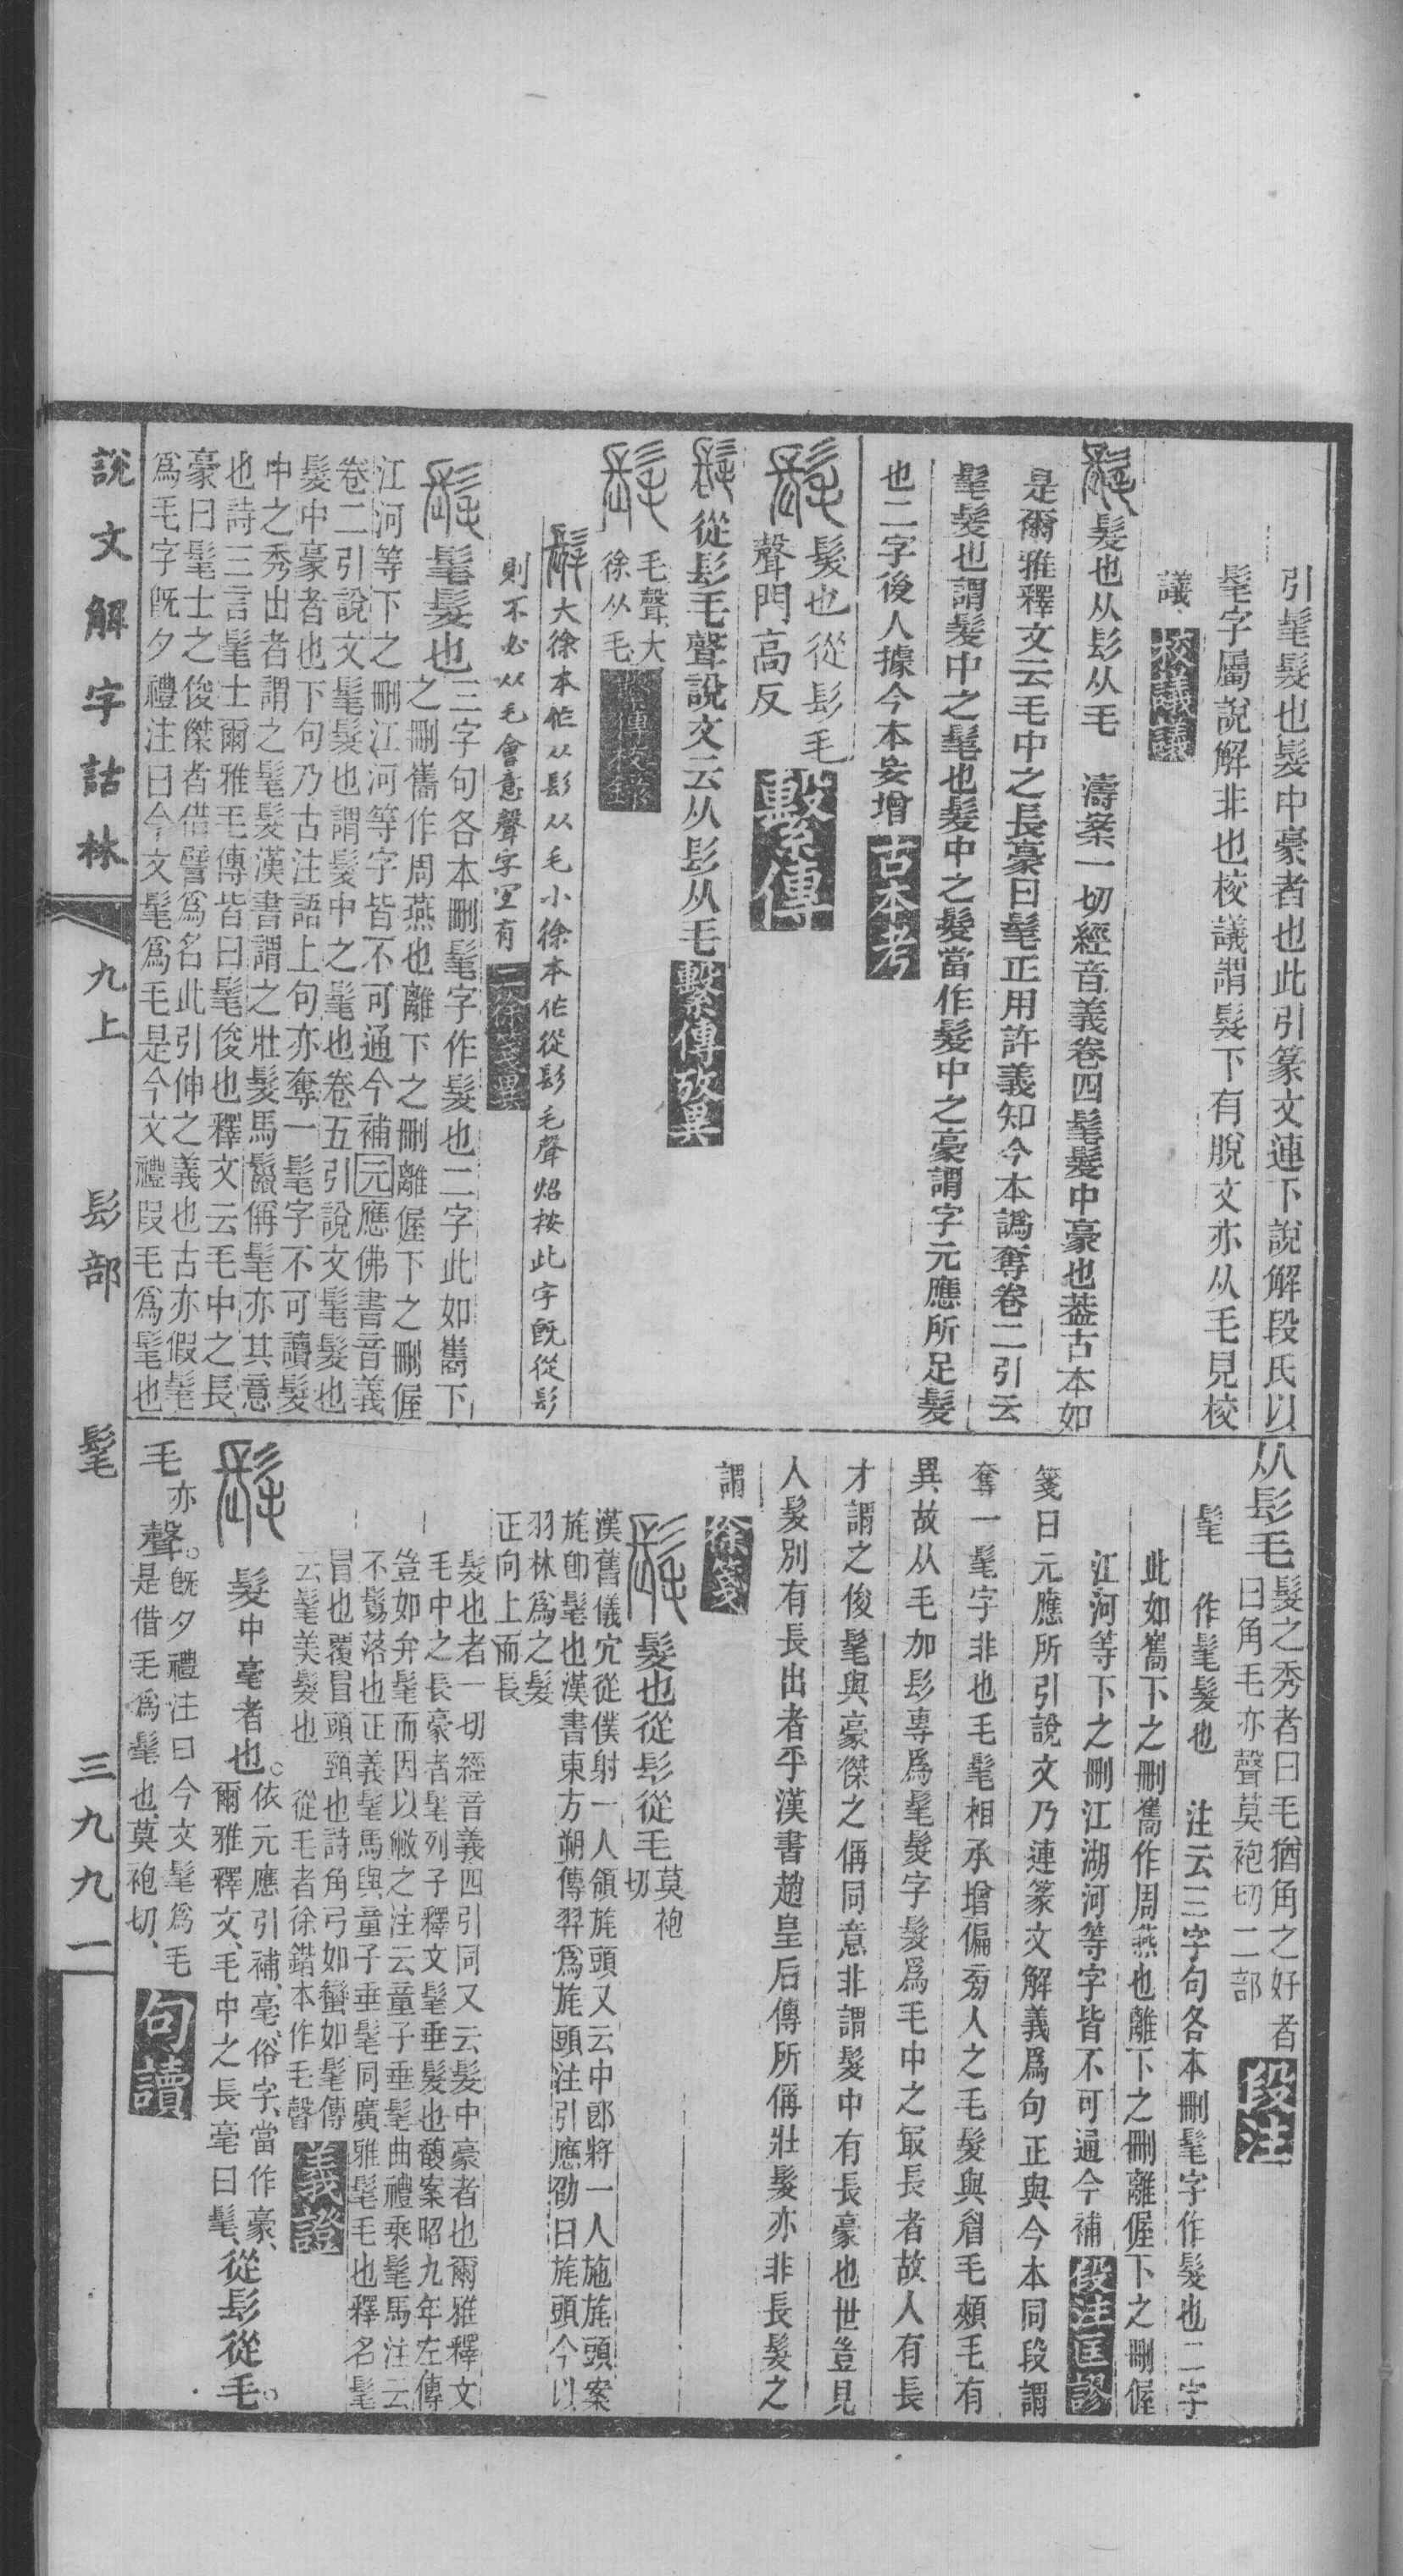 引髦髮也髮中豪者也此引篆文連下說解段氏以
髦字屬說解非也校議謂髮下有脫文亦从毛見校
議 校議議
髦 髮也从髟从毛 濤案一切經音義卷四髦髮中豪也葢古本如
是爾雅釋文云毛中之長豪曰髦正用許義知今本譌奪卷二引云
髦髮也謂髮中之髦也髮中之髮當作髮中之豪謂字元應所足髮
也二字後人據今本妄增 古本考
髦 髮也從髟毛
聲門高反 繫傳
髦 從髟毛聲說文云从髟从毛 繫傳攷異
髦 毛聲大
徐从毛 繫傳校錄
髦 大徐本作从髟从毛小徐本作從髟毛聲炤按此字旣從髟
則不必从毛會意聲字宜有 二徐箋異
髦 髦髮也 三字句各本刪髦字作髮也二字此如巂下
之刪巂作周燕也離下之刪離偓下之刪偓
江河等下之刪江河等字皆不可通今補元應佛書音義
卷二引說文髦髮也謂髮中之髦也卷五引說文髦髮也
髮中豪者也下句乃古注語上句亦奪一髦字不可讀髮
中之秀出者謂之髦髮漢書謂之壯髮馬鬣偁髦亦其意
也詩三言髦士爾雅毛傳皆曰髦俊也釋文云毛中之長
豪曰髦士之俊傑者借譬爲名此引伸之義也古亦假髦
爲毛字旣夕禮注曰今文髦爲毛是今文禮叚毛爲髦也
从髟毛 髮之秀者曰毛猶角之好者
曰角毛亦聲莫袍切二部 段注
髦 作髦髮也 注云三字句各本刪髦字作髮也二字
此如巂下之刪巂作周燕也離下之刪離偓下之刪偓
江河等下之刪江湖河等字皆不可通今補 段注匡謬
箋曰元應所引說文乃連篆文解義爲句正與今本同段謂
奪一髦字非也毛髦相承增偏旁人之毛髮與眉毛頰毛有
異故从毛加髟專爲髦髮字髮爲毛中之最長者故人有長
才謂之俊髦與豪傑之偁同意非謂髮中有長豪也世豈見
人髮別有長出者乎漢書趙皇后傳所偁壯髮亦非長髮之
謂 徐箋
髦 髮也從髟從毛 莫袍
切
漢舊儀宂從僕射一人領旄頭又云中郎將一人施旄頭案
旄卽髦也漢書東方朔傳羿爲旄頭注引應劭曰旄頭今以
羽林爲之髮
正向上而長
髮也者一切經音義四引同又云髮中豪者也爾雅釋文
毛中之長豪者髦列子釋文髦垂髮也馥案昭九年左傳
豈如弁髦而因以敝之注云童子垂髦曲禮乘髦馬注云
不鬄落也正義髦馬與童子垂髦同廣雅髦毛也釋名髦
冒也覆冒頭頸也詩角弓如蠻如髦傳
云髦美髮也 從毛者徐鍇本作毛聲 義證
髦 髮中毫者也。 依元應引補、毫、俗字、當作豪、
爾雅釋文、毛中之長毫曰髦、 從髟從毛。
毛亦聲。 旣夕禮注曰今文髦爲毛
是借毛爲髦也、莫袍切、 句讀
說文解字詁林 九上 髟部 髦 三九九一